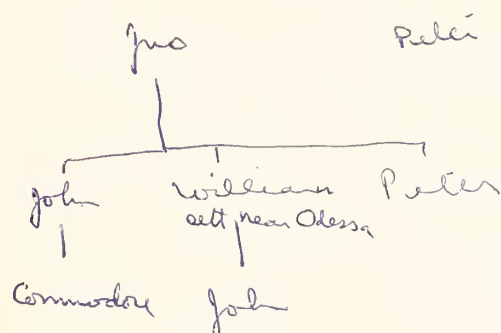 Jno Peter
John William Peter
sett near Odessa
Commodore John